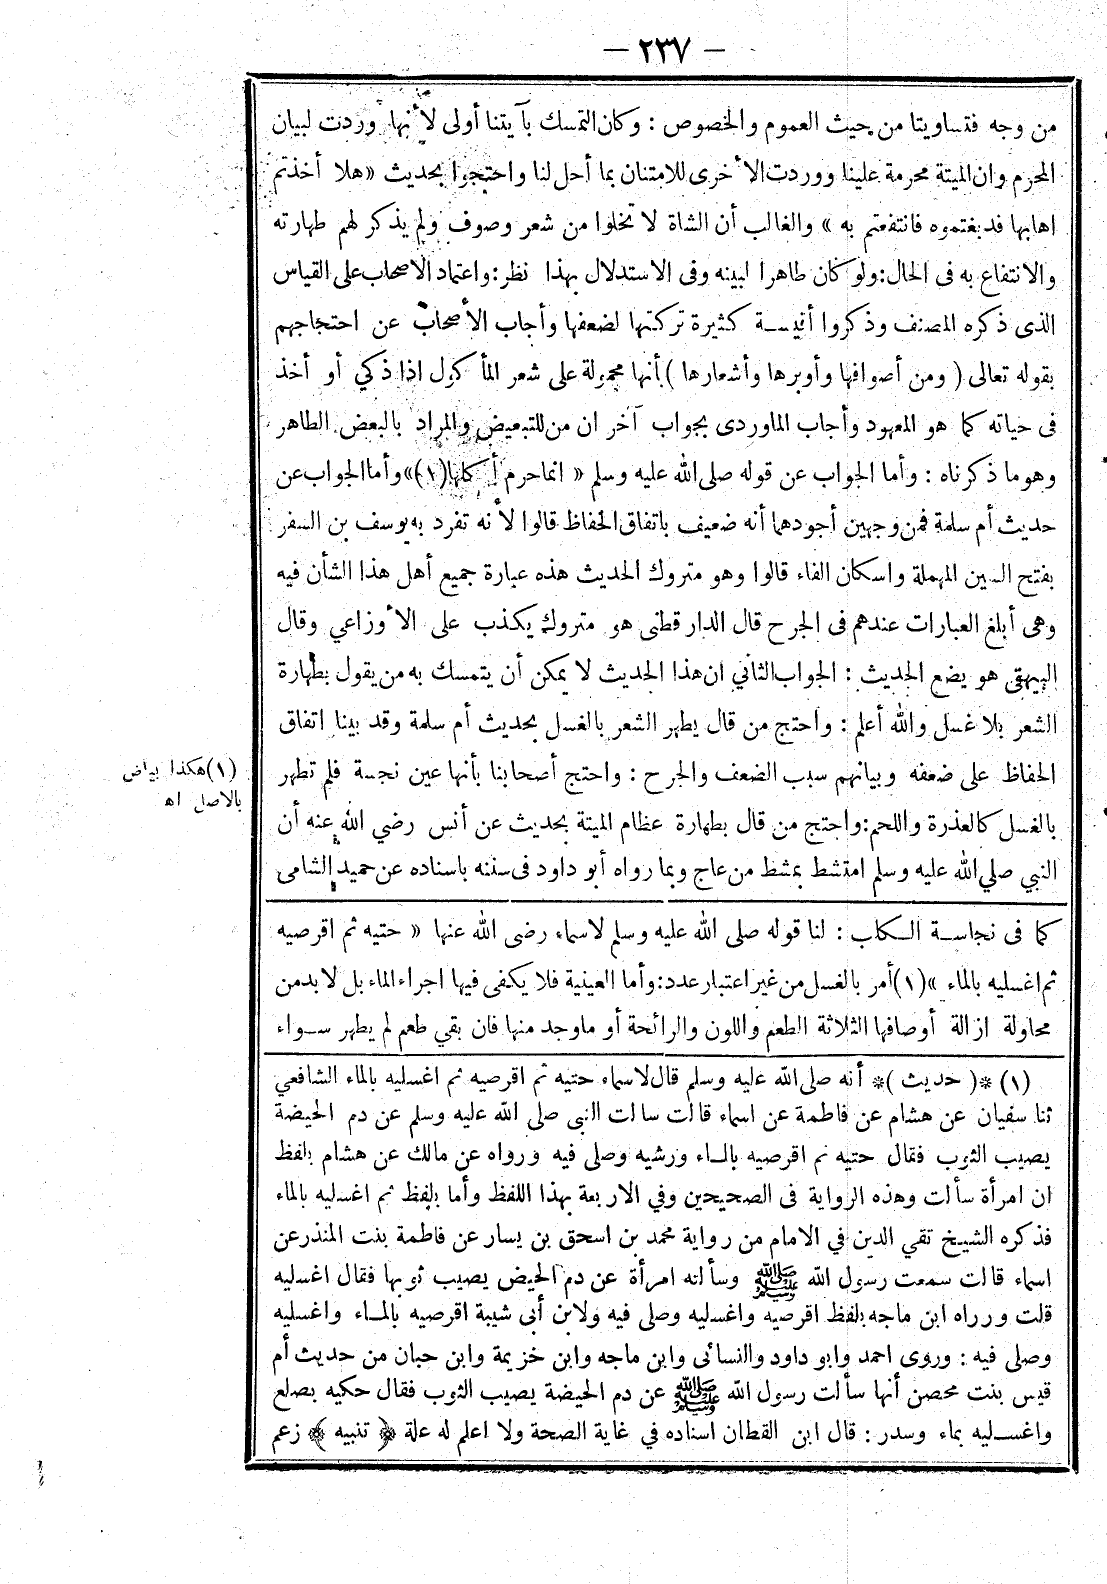 — ٢٣٧ —
من وجه فتساويتا من حيث العموم والخصوص : وكان التمسك بآيتنا أولى لأنها وردت لبيان
المحرم وان الميتة محرمة علينا ووردت الأخرى للامتنان بما أحل لنا واحتجوا بحديث «هلا أخذتم
اهابها فدبغتموه فانتفعتم به » والغالب أن الشاة لا تخلوا من شعر وصوف ولم يذكر لهم طهارته
والانتفاع به فى الحال : ولو كان طاهرا لبينه وفى الاستدلال بهذا نظر : واعتماد الاصحاب على القياس
الذى ذكره المصنف وذكروا أقيسة كثيرة تركتها لضعفها وأجاب الأصحاب عن احتجاجهم
بقوله تعالى ( ومن أصوافها وأوبرها وأشعارها ) بأنها محمولة على شعر المأكول اذا ذكي أو أخذ
فى حياته كما هو المعهود وأجاب الماوردى بجواب آخر ان من للتبعيض والمراد بالبعض الطاهر
وهو ما ذكرناه : وأما الجواب عن قوله صلى الله عليه وسلم « انما حرم أكلها (١)» وأما الجواب عن
حديث أم سلمة فمن وجهين أجودهما أنه ضعيف باتفاق الحفاظ قالوا لأنه تفرد به يوسف بن السفر
بفتح السين المهملة واسكان الفاء قالوا وهو متروك الحديث هذه عبارة جميع أهل هذا الشأن فيه
وهى أبلغ العبارات عندهم فى الجرح قال الدارقطنى هو متروك يكذب على الأوزاعي وقال
البيهقى هو يضع الحديث : الجواب الثاني ان هذا الحديث لا يمكن أن يتمسك به من يقول بطهارة
الشعر بلا غسل والله أعلم : واحتج من قال يطهر الشعر بالغسل بحديث أم سلمة وقد بينا اتفاق
الحفاظ على ضعفه وبيانهم سبب الضعف والجرح : واحتج أصحابنا بأنها عين نجسة فلم تطهر
بالغسل كالعذرة واللحم : واحتج من قال بطهارة عظام الميتة بحديث عن أنس رضي الله عنه أن
النبي صلي الله عليه وسلم امتشط بمشط من عاج وبما رواه أبو داود فى سننه باسناده عن حميد الشامى
(١) هكذا بياض
بالاصل اه
كما فى نجاسة الكلب : لنا قوله صلى الله عليه وسلم لاسماء رضى الله عنها « حتيه ثم اقرصيه
ثم اغسليه بالماء »(١) أمر بالغسل من غير اعتبار عدد : وأما العينية فلا يكفى فيها اجراء الماء بل لا بد من
محاولة ازالة أوصافها الثلاثة الطعم واللون والرائحة أو ما وجد منها فان بقي طعم لم يطهر سواء
(١) *( حديث )* أنه صلى الله عليه وسلم قال لاسماء حتيه ثم اقرصيه ثم اغسليه بالماء الشافعي
ثنا سفيان عن هشام عن فاطمة عن اسماء قالت سالت النبى صلى الله عليه وسلم عن دم الحيضة
يصيب الثوب فقال حتيه ثم اقرصيه بالماء ورشيه وصلى فيه ورواه عن مالك عن هشام بلفظ
ان امرأة سألت وهذه الرواية فى الصحيحين وفي الاربعة بهذا اللفظ وأما بلفظ ثم اغسليه بالماء
فذكره الشيخ تقي الدين في الامام من رواية محمد بن اسحق بن يسار عن فاطمة بنت المنذر عن
اسماء قالت سمعت رسول الله ﷺ وسألته امرأة عن دم الحيض يصيب ثوبها فقال اغسليه
قلت ورراه ابن ماجه بلفظ اقرصيه واغسليه وصلى فيه ولابن أبى شيبة اقرصيه بالماء واغسليه
وصلى فيه : وروى احمد وابو داود والنسائى وابن ماجه وابن خزيمة وابن حبان من حديث أم
قيس بنت محصن أنها سألت رسول الله ﷺ عن دم الحيضة يصيب الثوب فقال حكيه بصلع
واغسليه بماء وسدر : قال ابن القطان اسناده في غاية الصحة ولا اعلم له علة ﴿ تنبيه ﴾ زعم